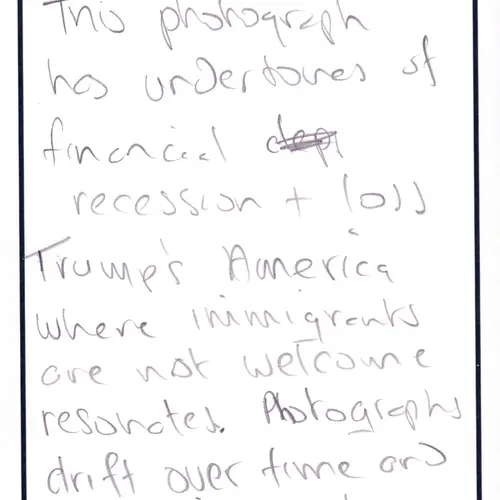 This photograph
has undertones of
financial
recession + loss
Trump's America
where immigrants
are not welcome
resonates. Photographs
drift over time and